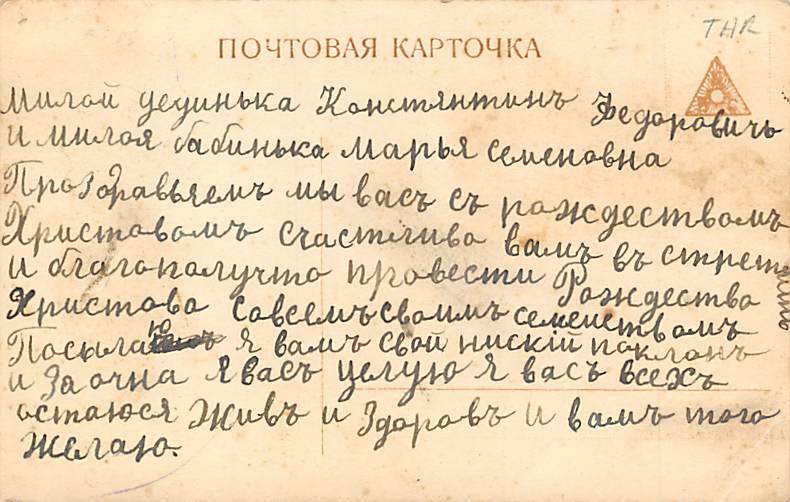 THR
ПОЧТОВАЯ КАРТОЧКА
Милой дединька Констянтинъ Федоровичь
и милоя бабинька марья семеновна
Проздравьяемъ мы васъ съ рождествомъ
Христовомъ счастливо вамъ въ стретить
и благополучто провести Рождество
Христово совсемъ своимъ семейством
Посылаю я вамъ свой нискій поклонъ
и За очна я васъ целую я васъ всехъ
остаюся живъ и здоровъ и вамъ того
желаю.